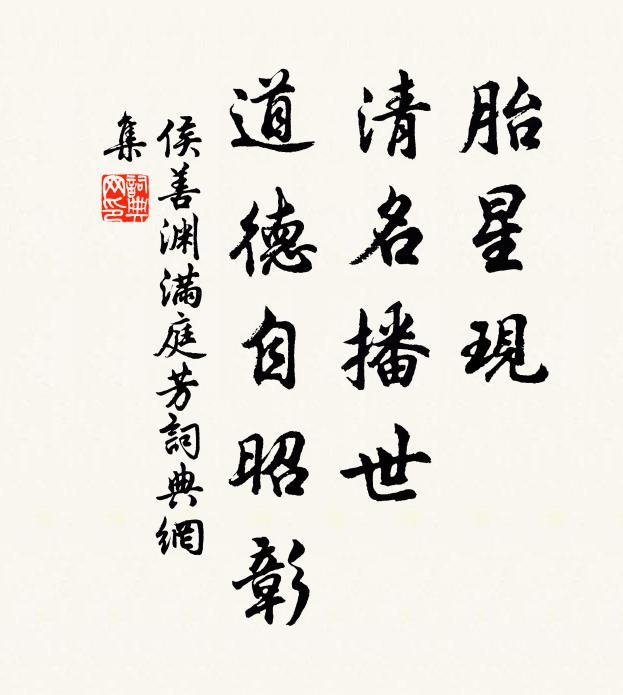 胎星現
清名播世
道德自昭彰
侯善渊滿庭芳詞典網
集
詞典网印